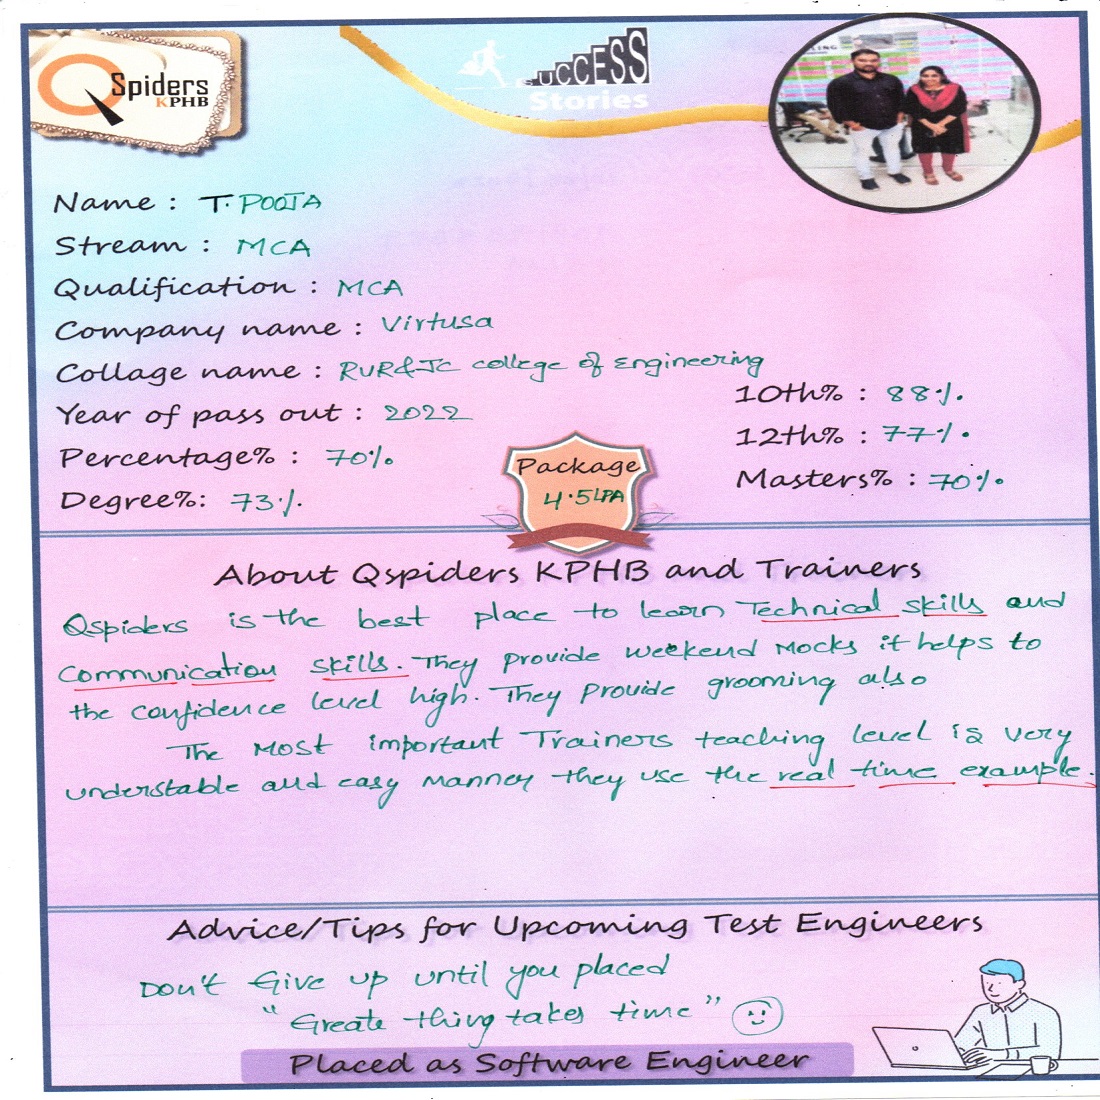 Spiders
KPHB
SUCCESS
Stories
Name : T. POOJA
Stream : MCA
Qualification : MCA
Company name : Virtusa
Collage name : RVR&JC college of Engineering
Year of pass out : 2022
Percentage% : 70%
Degree%: 73%.
10th% : 88%.
12th% : 77%.
Masters% : 70%
Package
4.5LPA
About Qspiders KPHB and Trainers
Qspiders is the best place to learn Technical skills and
Communication skills. They provide weekend Mocks it helps to
the confidence level high. They provide grooming also
The Most important Trainers teaching level is very
understable and easy manner they use the real time example.
Advice/Tips for Upcoming Test Engineers
Don't Give up until you placed
"Greate thing takes time"
Placed as Software Engineer